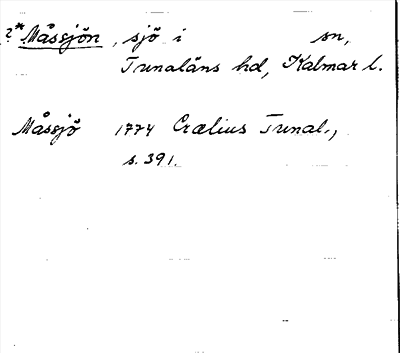 ?* Måssjön, sjö i sn,
Tunaläns hd, Kalmar l.
Måssjö 1774 Crælius Tunal.,
s. 391.